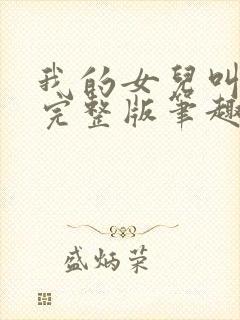 我的女兒叫
完整版筆趣
盛炳荣